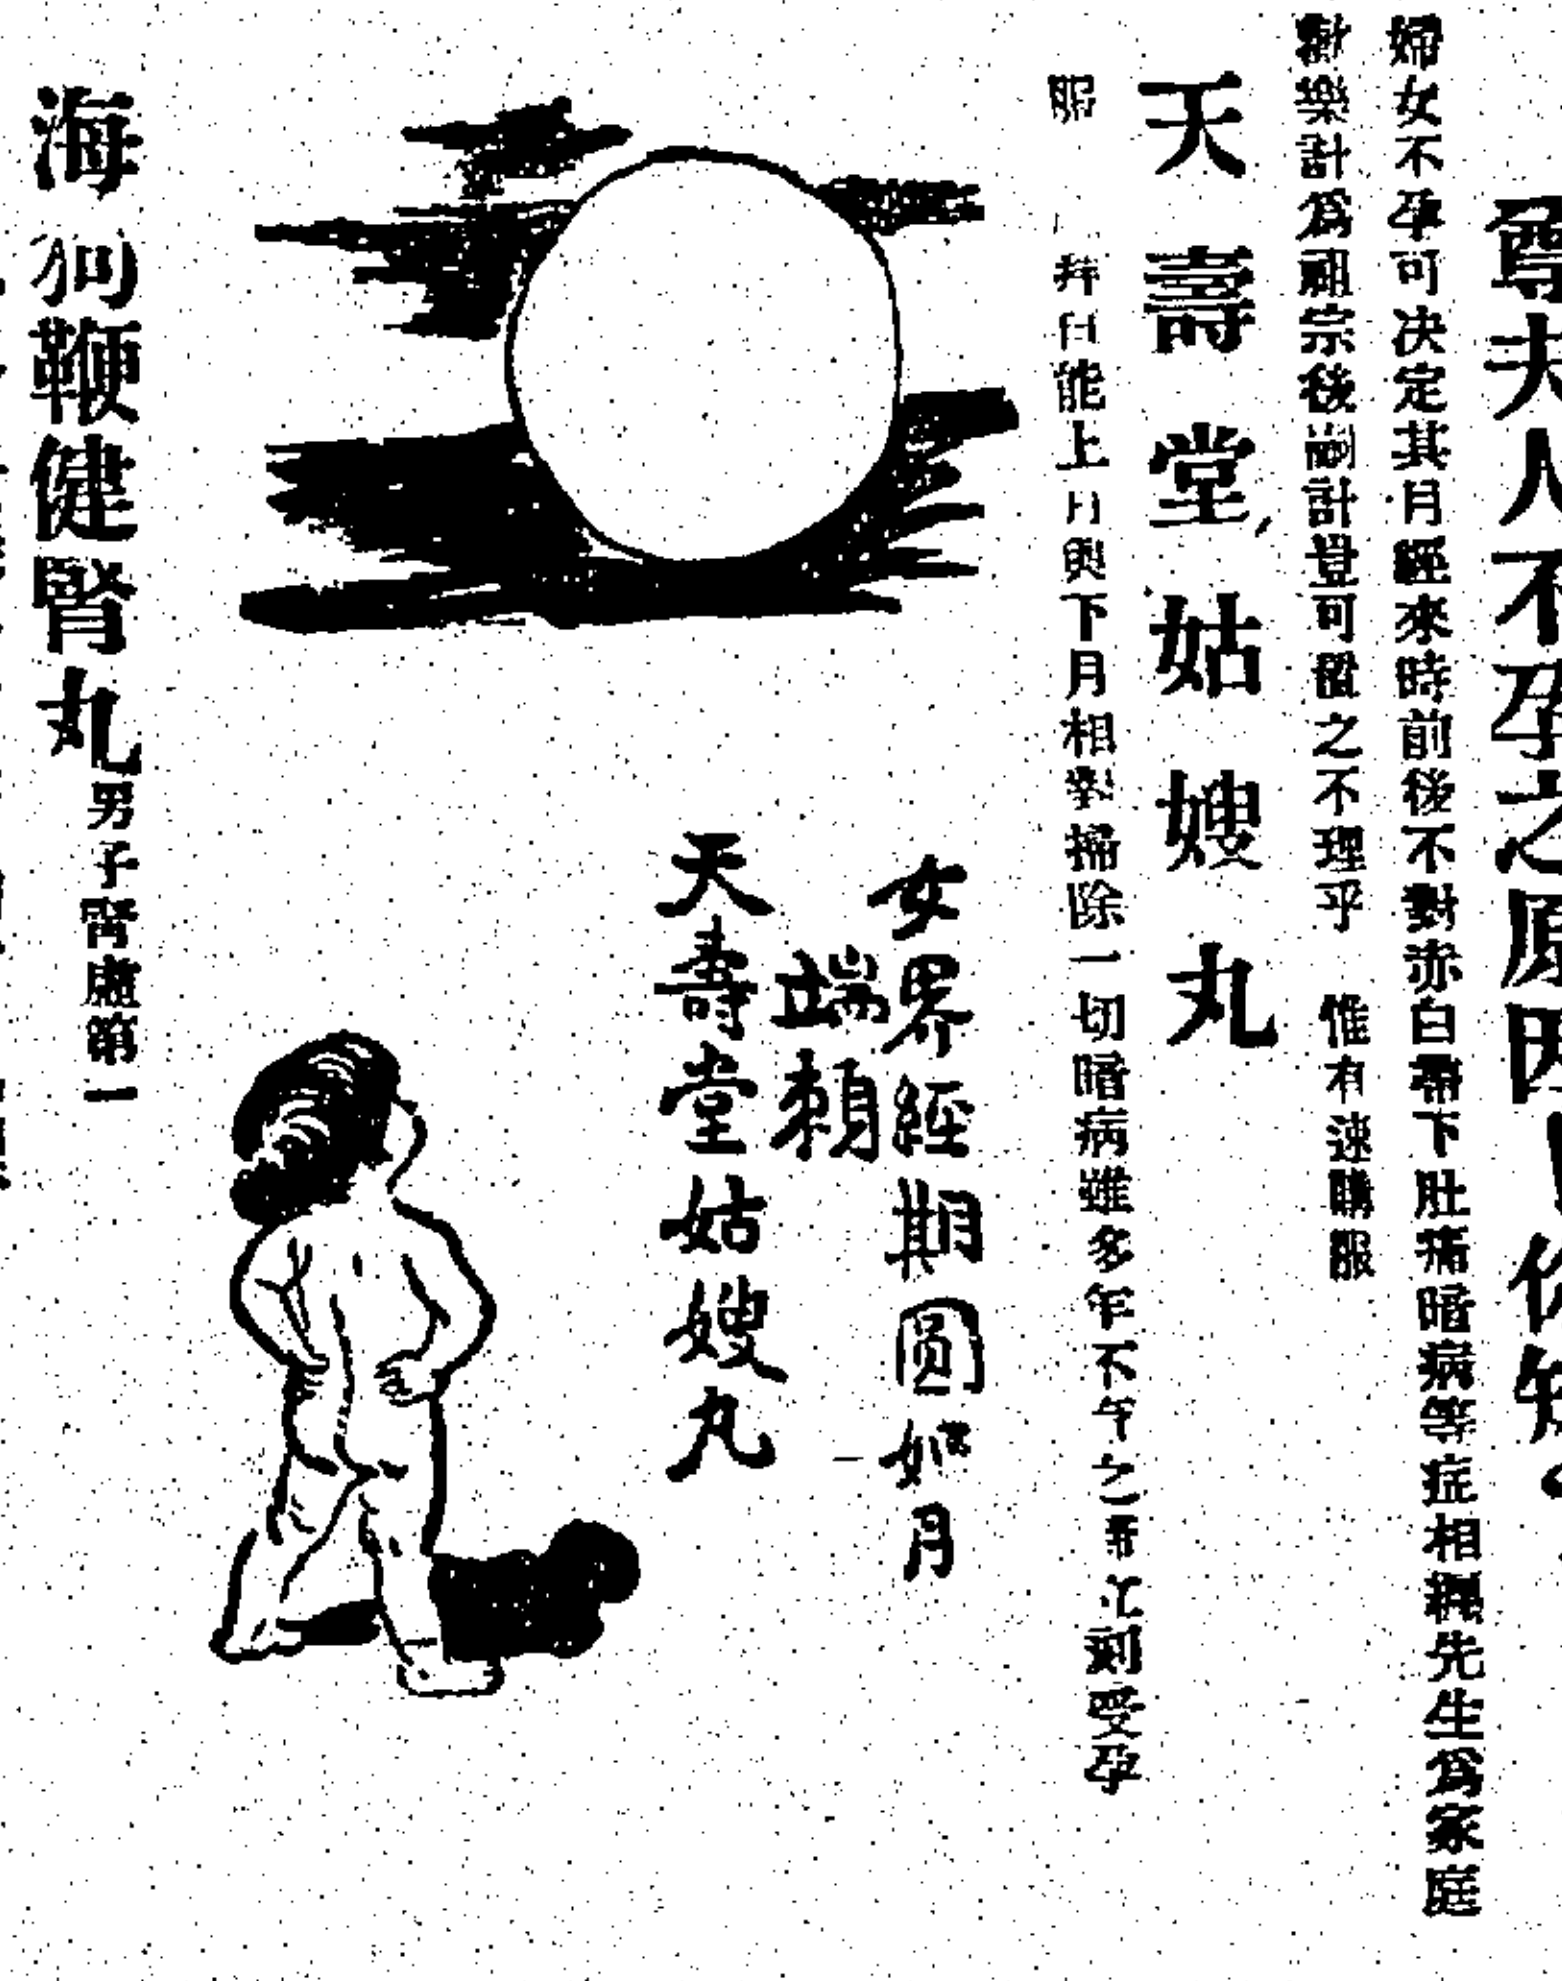 尊夫人不孕之原因
婦女不孕可决定其月經來時前後不對赤白帶下肚痛暗病等症相繩先生爲家庭
歡樂計爲祖宗後嗣計豈可置之不理乎 惟有速購服
天壽堂姑嫂丸
服 拜日能上月與下月相對掃除一切暗病雖多年不 之 立刻受孕
女界經期圓如月
端賴
天壽堂姑嫂丸
海狗鞭健腎丸 男子腎虛第一